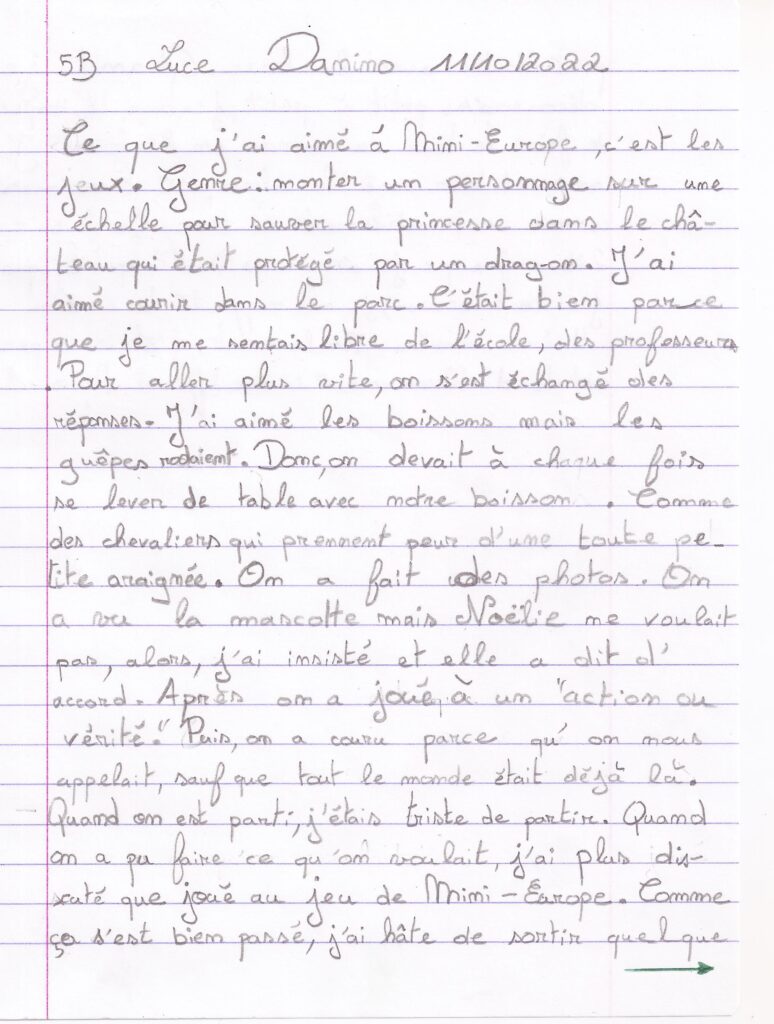 5B Luce Damino 11/10/2022
Ce que j'ai aimé à Mimi-Europe, c'est les
jeux. Genre : monter un personnage sur une
échelle pour sauver la princesse dans le châ-
teau qui était protégé par un dragon. J'ai
aimé courir dans le parc. C'était bien parce
que je me sentais libre de l'école, des professeurs
. Pour aller plus vite, on s'est échangé des
réponses. J'ai aimé les boissons mais les
guêpes rodaient. Donc, on devait à chaque fois
se lever de table avec notre boisson. Comme
des chevaliers qui prennent peur d'une toute pe-
tite araignée. On a fait des photos. On
a vu la mascotte mais Noëlie ne voulait
pas, alors, j'ai insisté et elle a dit d'
accord. Après on a joué, à un "action ou
vérité." Puis, on a couru parce qu'on nous
appelait, sauf que tout le monde était déjà là.
Quand on est parti, j'étais triste de partir. Quand
on a pu faire ce qu'on voulait, j'ai plus dis-
cuté que joué au jeu de Mimi-Europe. Comme
ça s'est bien passé, j'ai hâte de sortir quelque